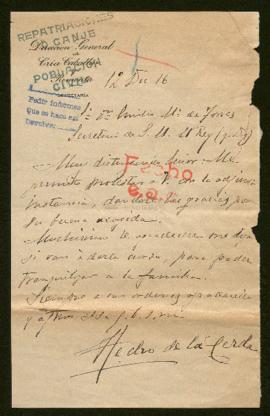 REPATRIACIONES
O CANJE
POBLACIÓN
CIVIL
Dirección General
de
Cría Caballar
y
Remonta
SECRETARÍA
Pedir informes
Que se haga este
12 Dic 16
Sr. Dn. Emilio Mª de Torres
Secretario de S. M. el Rey (q. D. g.)
Muy distinguido Señor: Me
permito molestar a V. con la adjunta
instancia, dándole las gracias por
su buena acogida.
Muchísimo le agradeceré me diga
si van a darle curso, para poder
tranquilizar a la familia.
Siempre a sus órdenes
q. b. s. m.
Fecho
Pedro de la Cerda